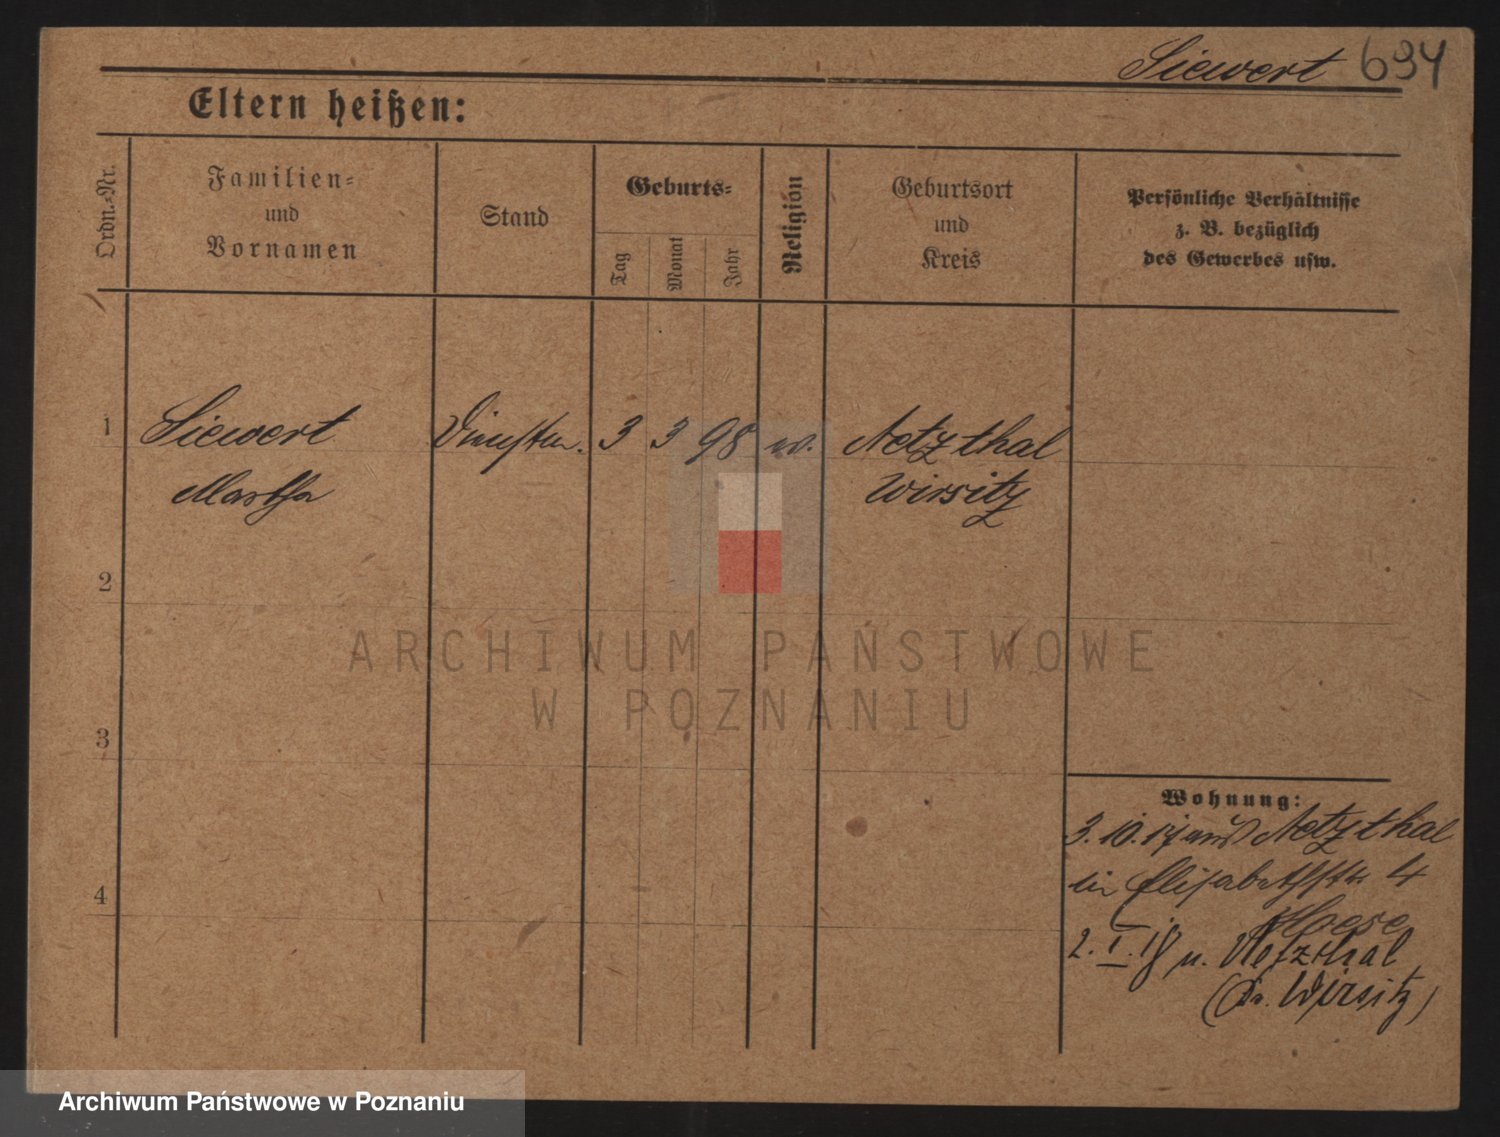 Siewert 694
Eltern heißen:
Ordn.-Nr.
Familien-
und
Vornamen
Stand
Geburts-
Tag
Monat
Jahr
Religion
Geburtsort
und
Kreis
Persönliche Verhältnisse
z. B. bezüglich
des Gewerbes usw.
1 Siewert 3 3 98 Netzthal
Martha Wirsitz
2
3
4
Wohnung:
3.10.17 aus Netzthal
Elisabethstr. 4
Hoese
2. I. 18 n. Netzthal
(Kr. Wirsitz)
ARCHIWUM PAŃSTWOWE
W POZNANIU
Archiwum Państwowe w Poznaniu